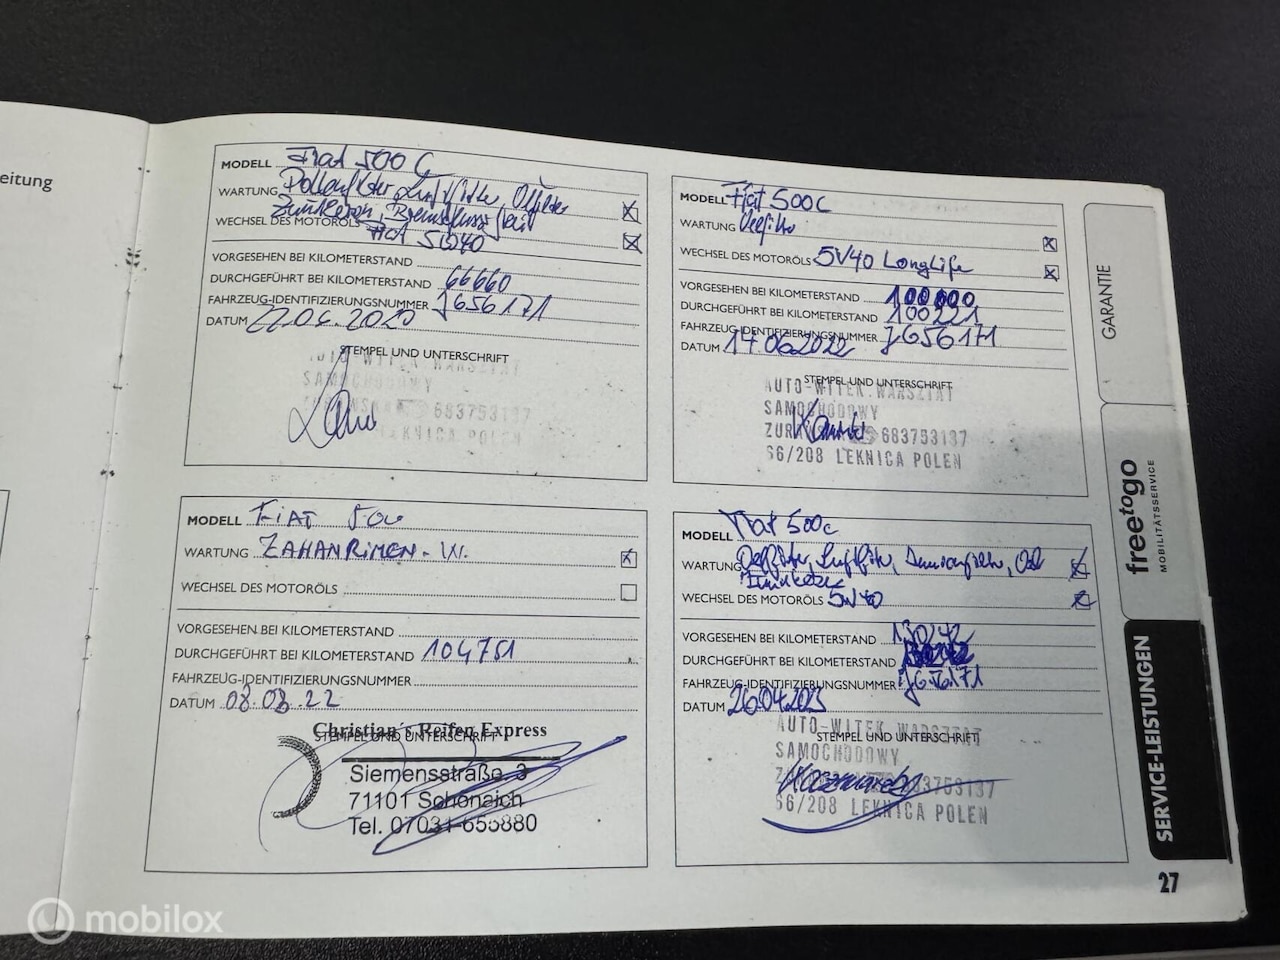 eitung
MODELL Fiat 500 C
WARTUNG Pollenfilter Luftfilter Ölfilter
Zündkerzen, Bremsflüssigkeit
WECHSEL DES MOTORÖLS 5W40
VORGESEHEN BEI KILOMETERSTAND
DURCHGEFÜHRT BEI KILOMETERSTAND 66660
FAHRZEUG-IDENTIFIZIERUNGSNUMMER J656171
DATUM 22.06.2020
STEMPEL UND UNTERSCHRIFT
AUTO-WITEK WARSZTAT
SAMOCHODOWY
683753137
LEKNICA POLEN
MODELL Fiat 500C
WARTUNG Oelfilter
WECHSEL DES MOTORÖLS 5W40 LongLife
VORGESEHEN BEI KILOMETERSTAND 100000
DURCHGEFÜHRT BEI KILOMETERSTAND 100221
FAHRZEUG-IDENTIFIZIERUNGSNUMMER J656171
DATUM 14.06.2022
STEMPEL UND UNTERSCHRIFT
AUTO-WITEK WARSZTAT
SAMOCHODOWY
683753137
66/208 LEKNICA POLEN
MODELL FIAT 500
WARTUNG ZAHANRIMEN-W.
WECHSEL DES MOTORÖLS
VORGESEHEN BEI KILOMETERSTAND
DURCHGEFÜHRT BEI KILOMETERSTAND 104751
FAHRZEUG-IDENTIFIZIERUNGSNUMMER
DATUM 08.08.22
Christian's Reifen Express
STEMPEL UND UNTERSCHRIFT
Siemensstraße 3
71101 Schönaich
Tel. 07031-655880
MODELL Fiat 500c
WARTUNG Oelfilter, Luftfilter, Öl
Zündkerze
WECHSEL DES MOTORÖLS 5W40
VORGESEHEN BEI KILOMETERSTAND 130242
DURCHGEFÜHRT BEI KILOMETERSTAND
FAHRZEUG-IDENTIFIZIERUNGSNUMMER J656171
DATUM 26.04.2023
AUTO-WITEK WARSZTAT
STEMPEL UND UNTERSCHRIFT
SAMOCHODOWY
683753137
66/208 LEKNICA POLEN
GARANTIE
freetogo
MOBILITÄTSSERVICE
SERVICE-LEISTUNGEN
27
mobilox